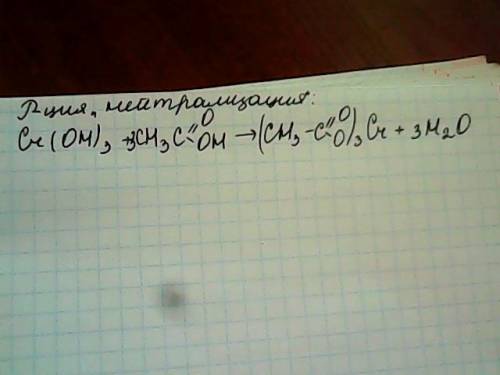 Р-ция нейтрализация:
Cr(OH)₃ + 3CH₃C(=O)OH → (CH₃-C(=O)O)₃Cr + 3H₂O